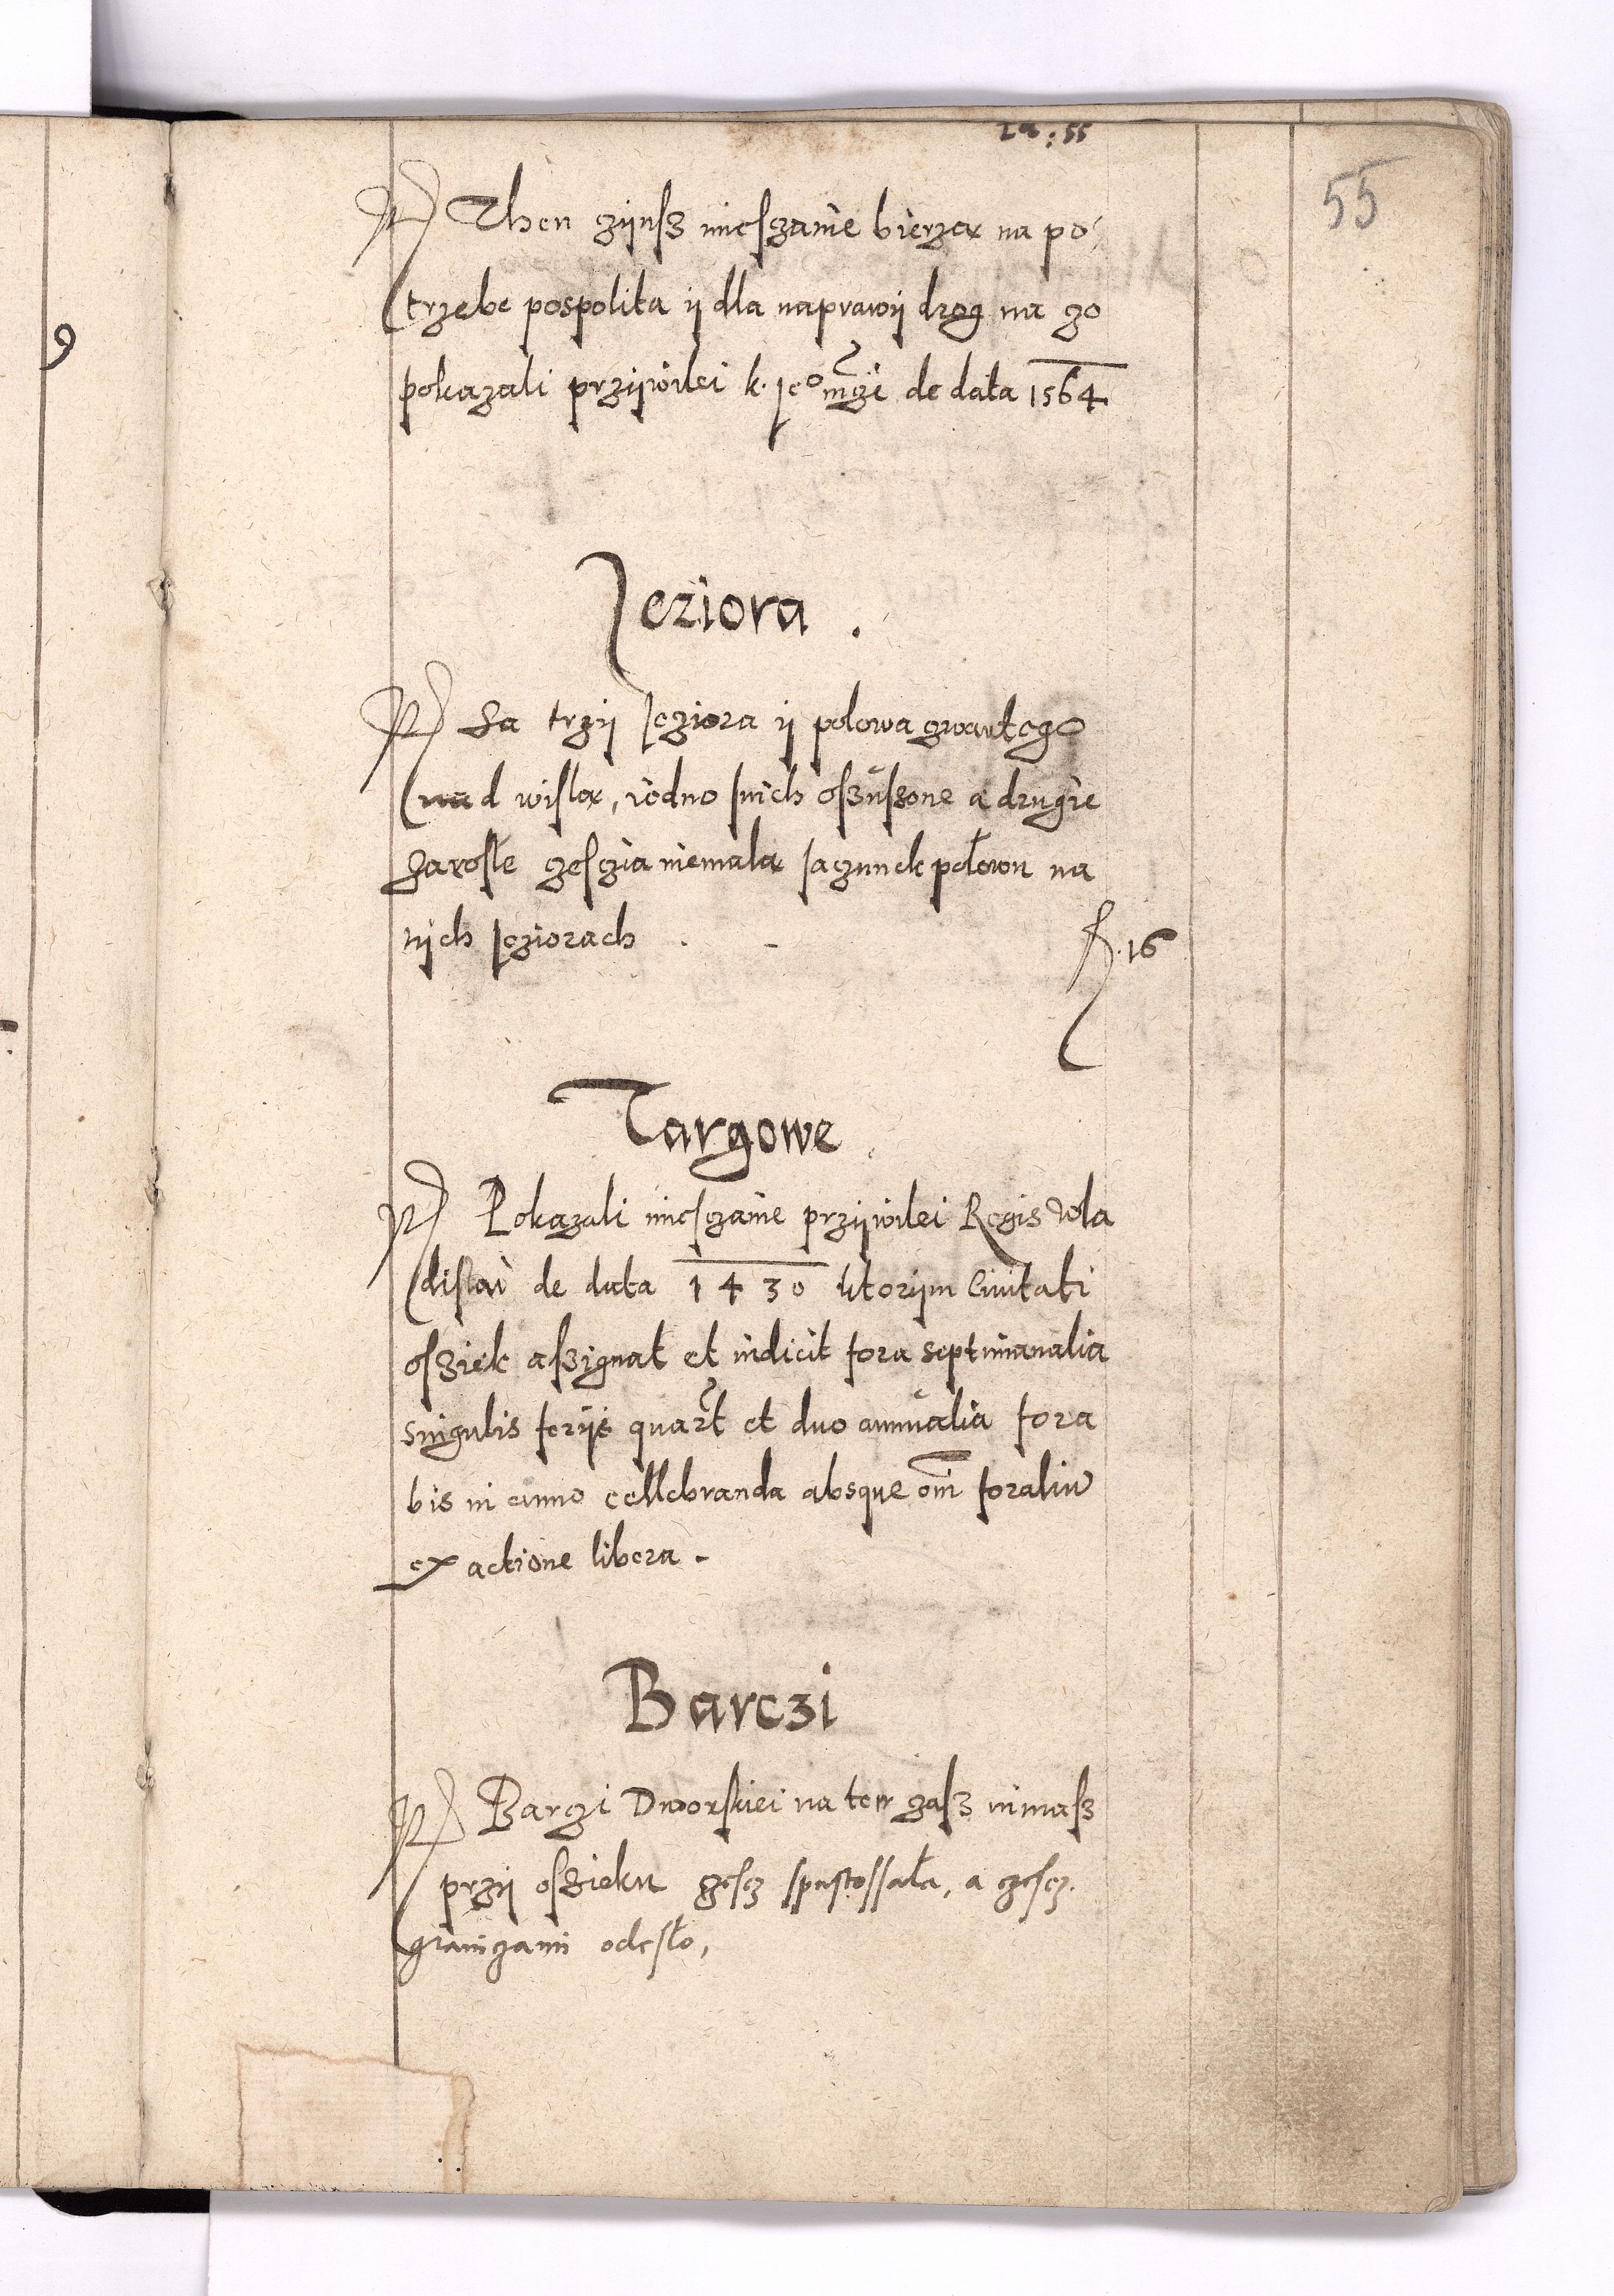 55
Then zijnsz miesczanie bierzą na po
trzebe pospolita ij dla naprawij drog na czo
pokazali przijwilei k. Jeo mczi de data 1564
Jeziora.
Sa trzij Jeziora ij polowa czwartego
nad wislą, iedno snich oszuszone a drugie
zarosle czesczia niemalą saczunek połowu na
nijch Jeziorach . - f. 16
Targowe
Pokazali miesczanie przijwilei Regis Wla
dislai de data 1430 Civitati
ossiek assignat et indicit fora septimanalia
singulis ferijs quart et duo annualia fora
bis in anno cellebranda absque omi foraliu
exactione libera -
Barczi
Barczi Dworskiei na ten czasz nimasz
przij ossieku czescz spustossała, a czescz
graniczami odeszło,